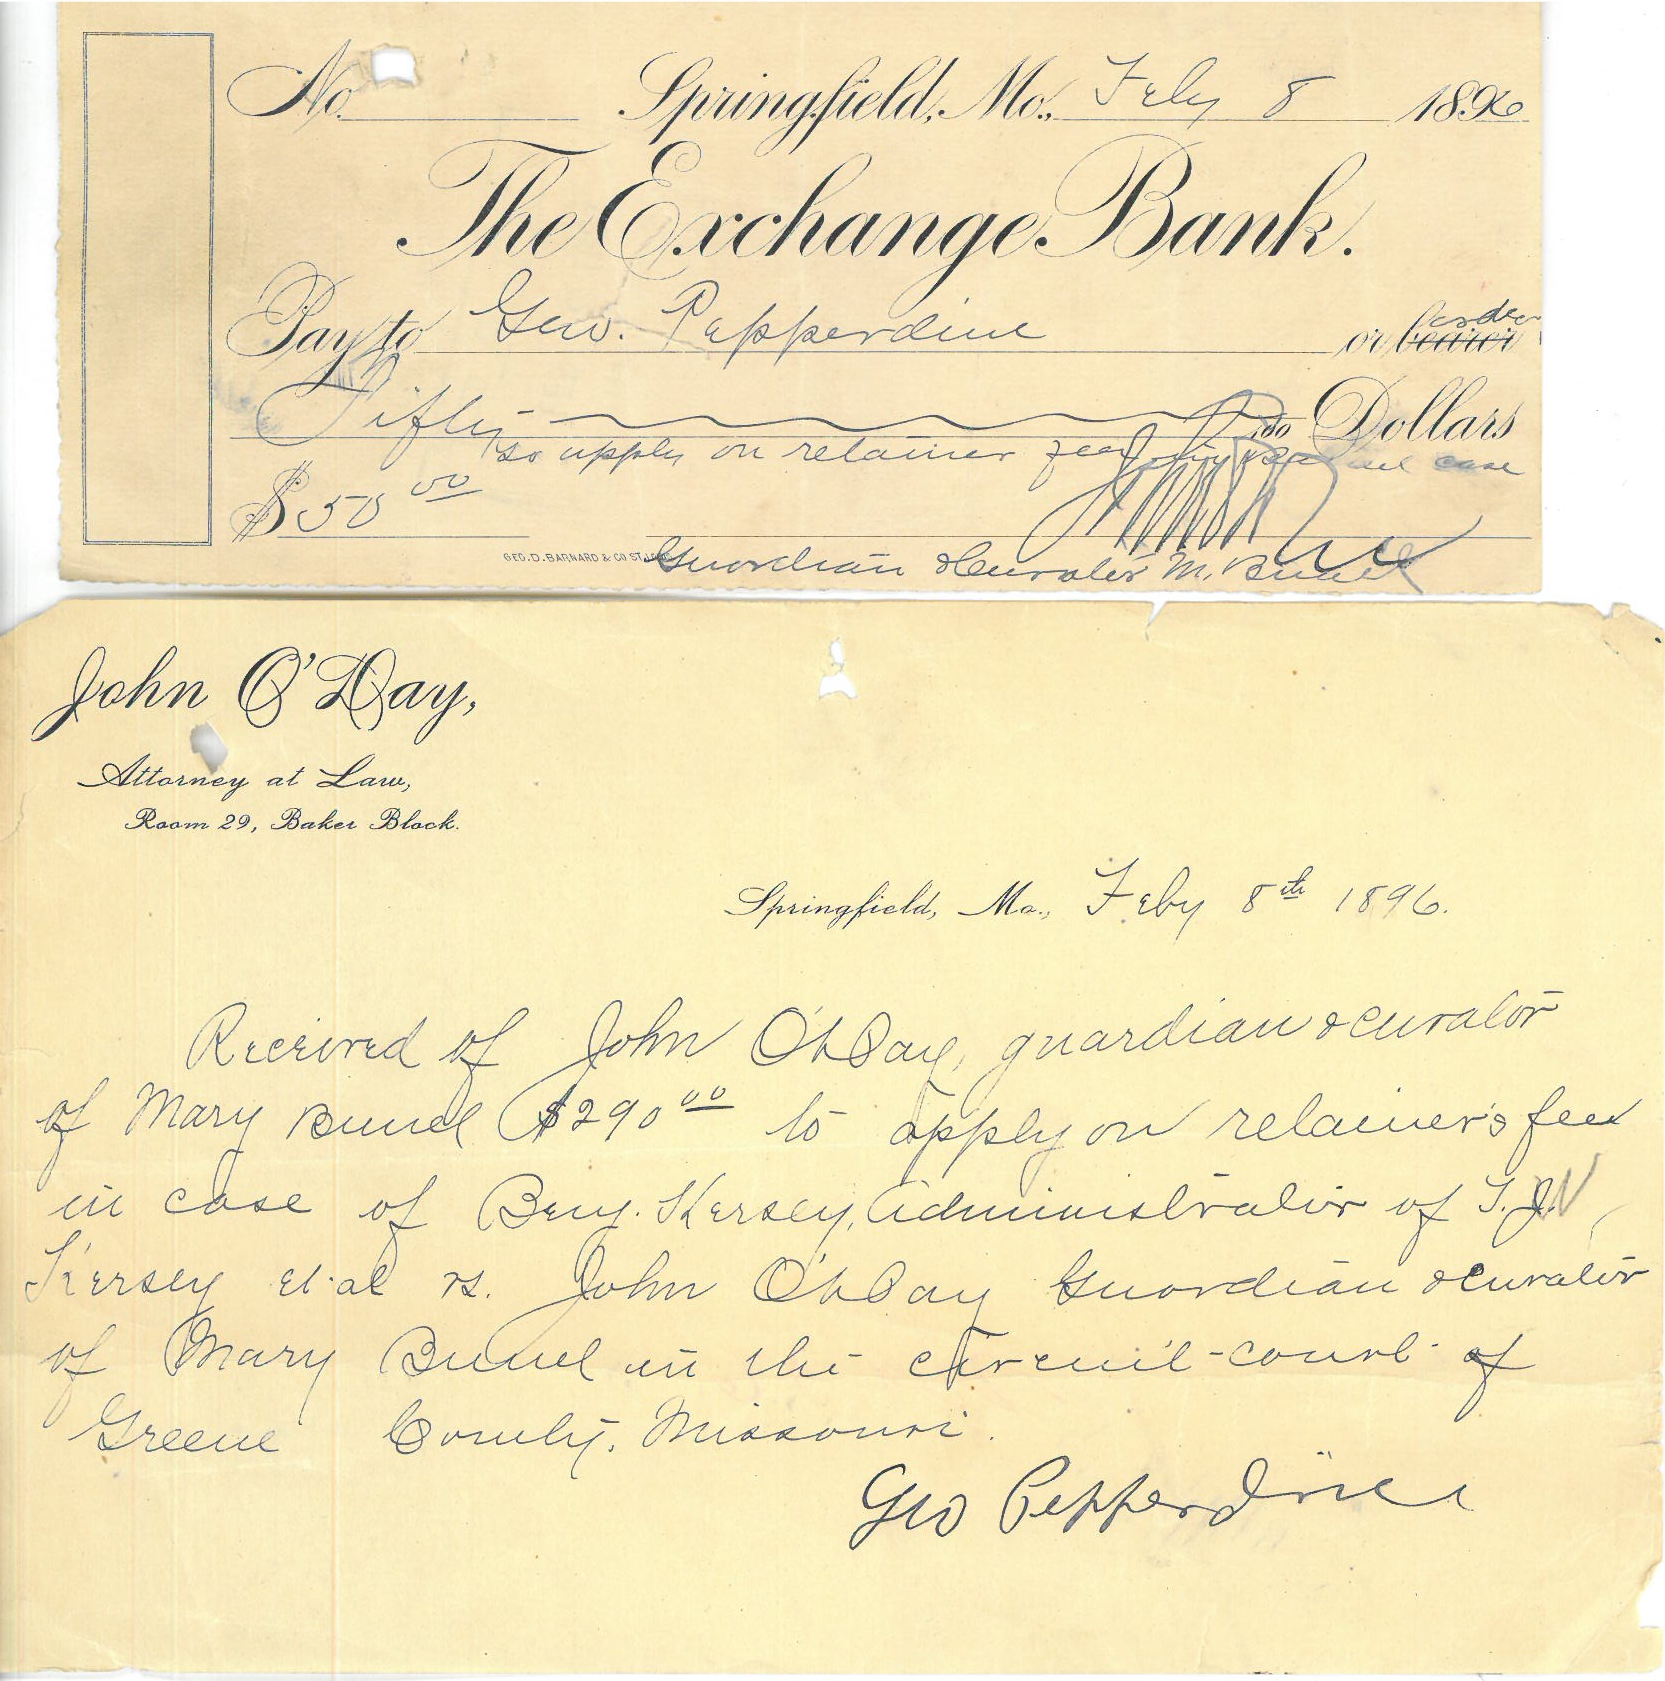 No. Springfield, Mo., Feby 8 1896
The Exchange Bank.
Pay to Geo. Pepperdine or bearer order
Fifty no Dollars
to apply on retainer fee case
$50 00
GEO. D. BARNARD & CO. ST. LOUIS
Guardian & Curator M. Bunel
John O'Day,
Attorney at Law,
Room 29, Baker Block.
Springfield, Mo., Feby 8th 1896.
Received of John O'Day, guardian & curator
of Mary Bunel $290 00 to apply on retainer's fee
in case of Benj. Kersey, Administrator of T. J.
Kersey et al vs. John O'Day Guardian & curator
of Mary Bunel in the circuit court of
Greene County, Missouri.
Geo Pepperdine